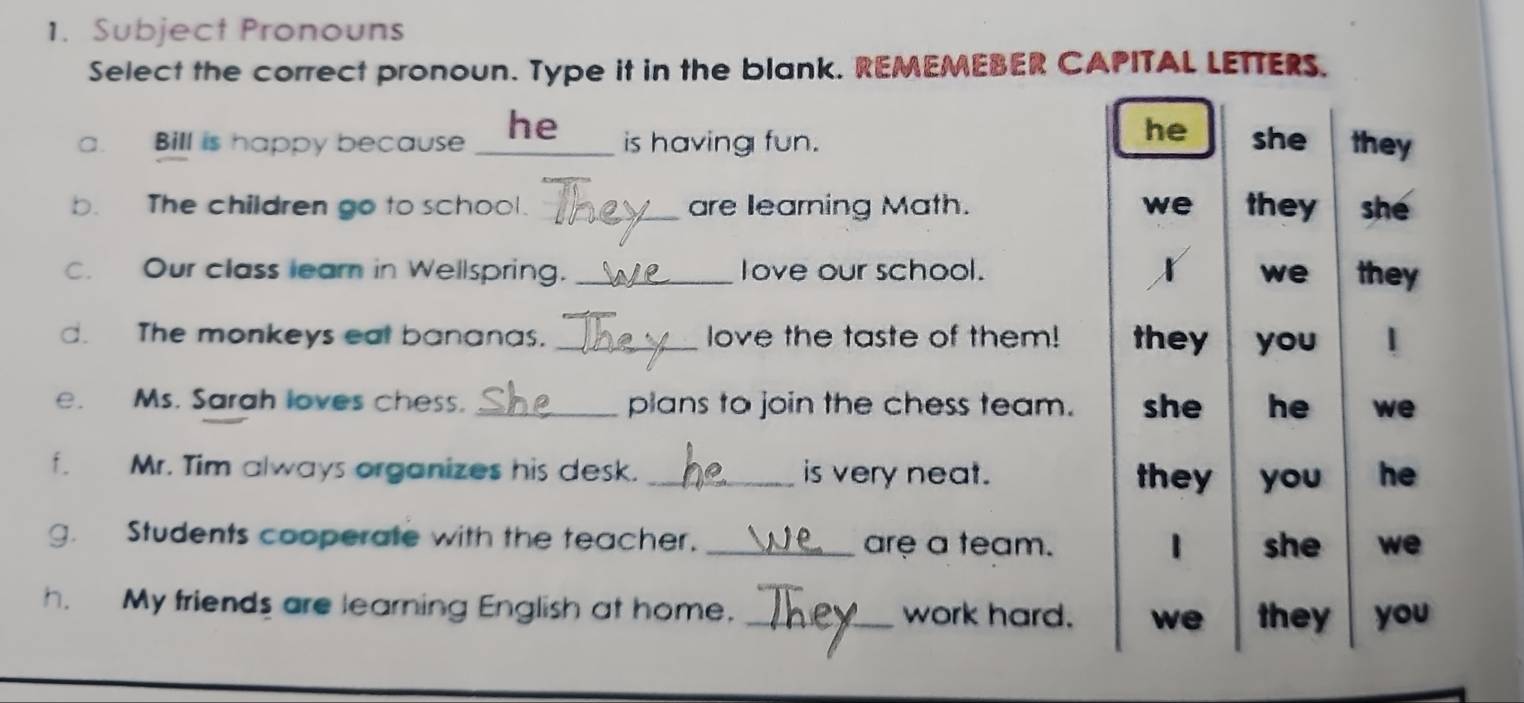 1. Subject Pronouns
Select the correct pronoun. Type it in the blank. REMEMEBER CAPITAL LETTERS.
a. Bill is happy because he is having fun. he she they
b. The children go to school. They are learning Math. we they she
c. Our class learn in Wellspring. we love our school. I we they
d. The monkeys eat bananas. They love the taste of them! they you I
e. Ms. Sarah loves chess. She plans to join the chess team. she he we
f. Mr. Tim always organizes his desk. he is very neat. they you he
g. Students cooperate with the teacher. we are a team. I she we
h. My friends are learning English at home. They work hard. we they you